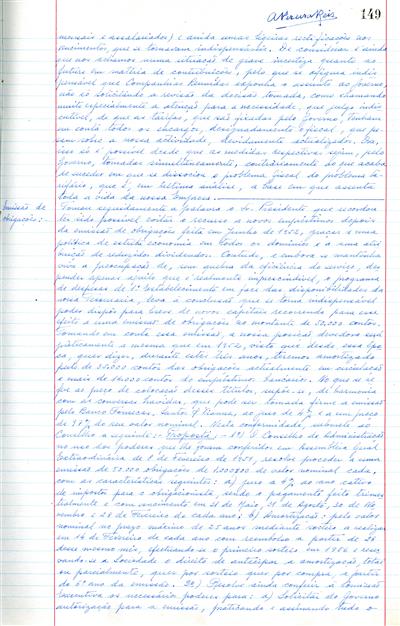 149
mensais e assalariados) e ainda umas ligeiras rectificações nos
vencimentos, que se tornavam indispensáveis. De considerar é ainda
que nos achamos numa situação de grave incerteza quanto ao
futuro em matéria de contribuições, pelo que se afigura indis-
pensável que Companhias Reunidas exponha o assunto ao Governo,
não só solicitando a revisão da decisão tomada, como chamando
muito especialmente a atenção para a necessidade, que julga indis-
cutível, de que as tarifas, que são fixadas pelo Governo, tenham
em conta todos os encargos, designadamente o fiscal, que pe-
sam sobre a nossa actividade, devidamente actualizados. Ora,
isso só é possível desde que as medidas respectivas sejam, pelo
Governo, tomadas simultaneamente, contrariamente ao que acaba
de suceder em que se dissociou o problema fiscal do problema ta-
rifário, que é, em última análise, a base em que assenta
toda a vida da nossa Empresa.
Emissão de
obrigações:-
Tomou seguidamente a palavra o Sr. Presidente que recordou
ter sido possível evitar o recurso a novos empréstimos depois
da emissão de obrigações feita em Junho de 1952, graças a uma
política de estrita economia em todos os domínios e a uma atri-
buição de reduzidos dividendos. Contudo, e embora se mantenha
viva a preocupação de, sem quebra da eficiência do serviço, des-
pender apenas aquilo que é realmente imprescindível, o programa
de despesas de 1º Estabelecimento em face das disponibilidades da
nossa Tesouraria, leva à conclusão que se torna indispensável
poder dispôr para breve de novos capitais recorrendo para esse
efeito a uma emissão de obrigações no montante de 50.000 contos.
Tomando em conta essa emissão, a nossa posição devedora será
pràticamente a mesma que em 1952, visto que desde essa épo-
ca, quer dizer, durante estes três anos, teremos amortizado
perto de 35.000 contos das obrigações actualmente em circulação
e mais de 14.000 contos de empréstimos bancários. No que se re-
fere ao preço de colocação desses títulos, refere-se, de harmonia
com as conversas havidas, que pode ser tomada firme a emissão
pelo Banco Fonsecas, Santos & Vianna, ao juro de 4% e a um preço
de 97% do seu valor nominal. Nesta conformidade, submete ao
Conselho a seguinte:- Proposta:- 1º) O Conselho de Administração
no uso dos poderes que lhe foram conferidos em Assembleia Geral
Extraordinária de 8 de Fevereiro de 1951, resolve proceder a uma
emissão de 50.000 obrigações de 1.000$00 de valor nominal cada,
com as características seguintes: a) juro a 4% ao ano cativo
de imposto para o obrigacionista, sendo o pagamento feito trimes-
tralmente e com vencimento em 31 de Maio, 31 de Agosto, 30 de No-
vembro e 28 de Fevereiro de cada ano; b) Amortização: pelo valor
nominal no prazo máximo de 25 anos mediante sorteio a realizar
em 14 de Fevereiro de cada ano com reembolso a partir de 28
desse mesmo mês, efectuando-se o primeiro sorteio em 1956 e reser-
vando-se a Sociedade o direito de antecipar a amortização, total
ou parcialmente, quer por sorteio quer por compra, a partir
do 5º ano da emissão. 2º) Resolve ainda conferir à Comissão
Executiva os necessários poderes para: a) Solicitar do Governo
autorização para a emissão, praticando e assinando tudo o